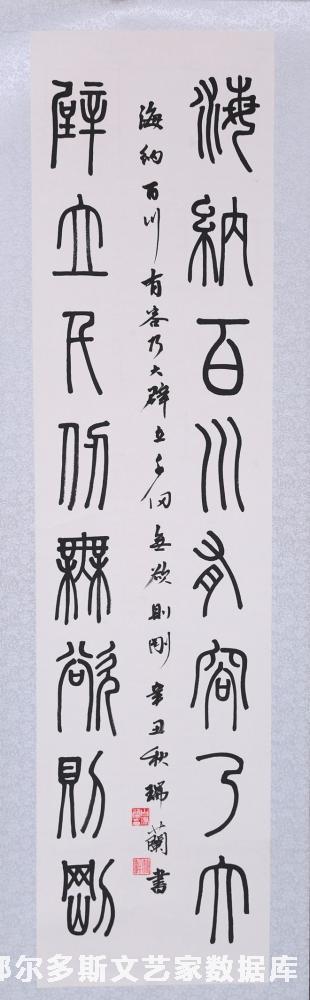 海納百川有容乃大
海納百川有容乃大壁立千仞無欲則剛辛丑秋瑞蘭書
壁立千仞無欲則剛
鄂尔多斯文艺家数据库